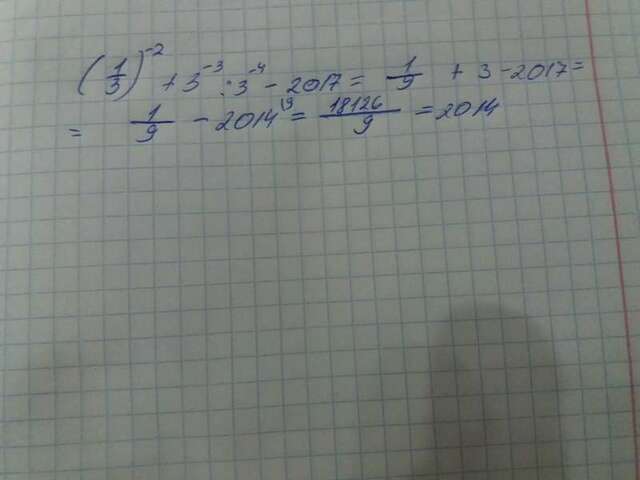 (1/3)⁻² + 3⁻³ : 3⁻⁴ - 2017 = 1/9 + 3 - 2017 =
= 1/9 - 2014 ⁽⁹ = 18126/9 = 2014